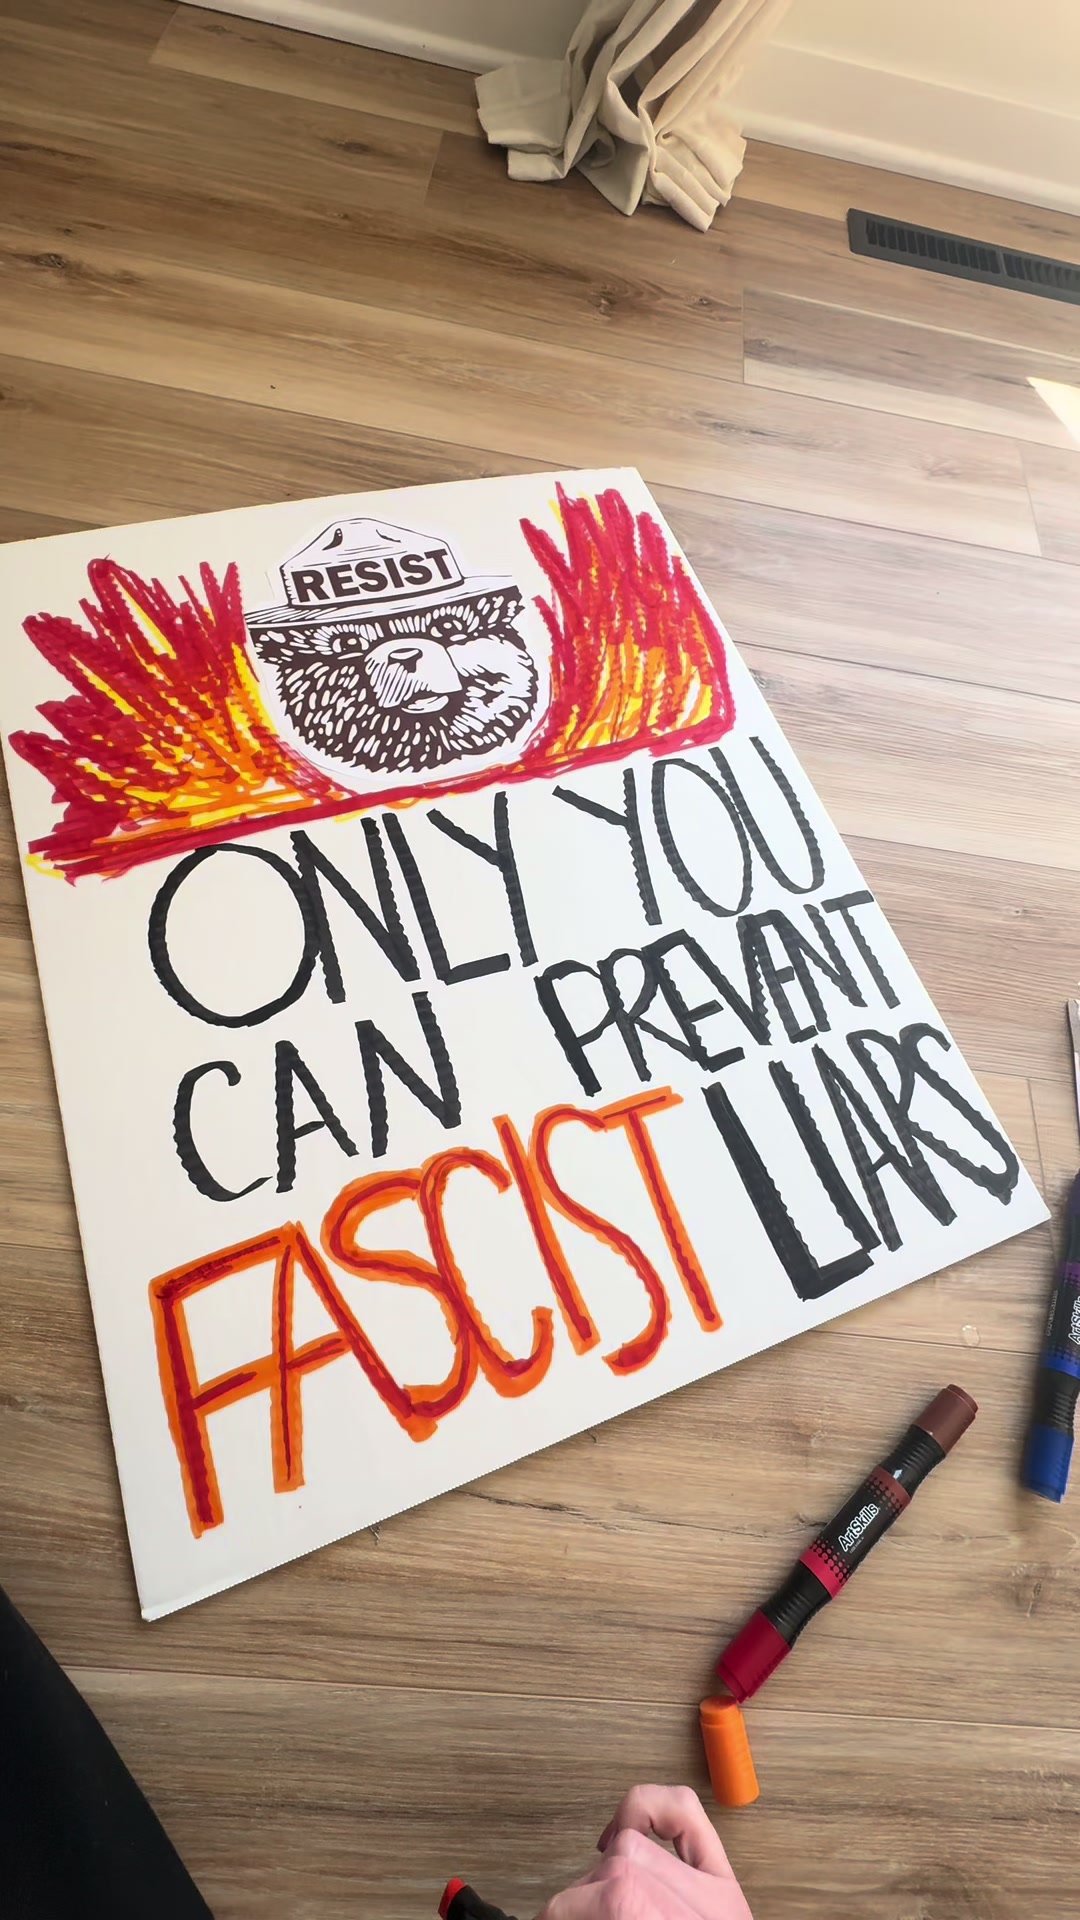 RESIST
ONLY YOU
CAN PREVENT
FASCIST LIARS
ArtSkills
ArtSkills